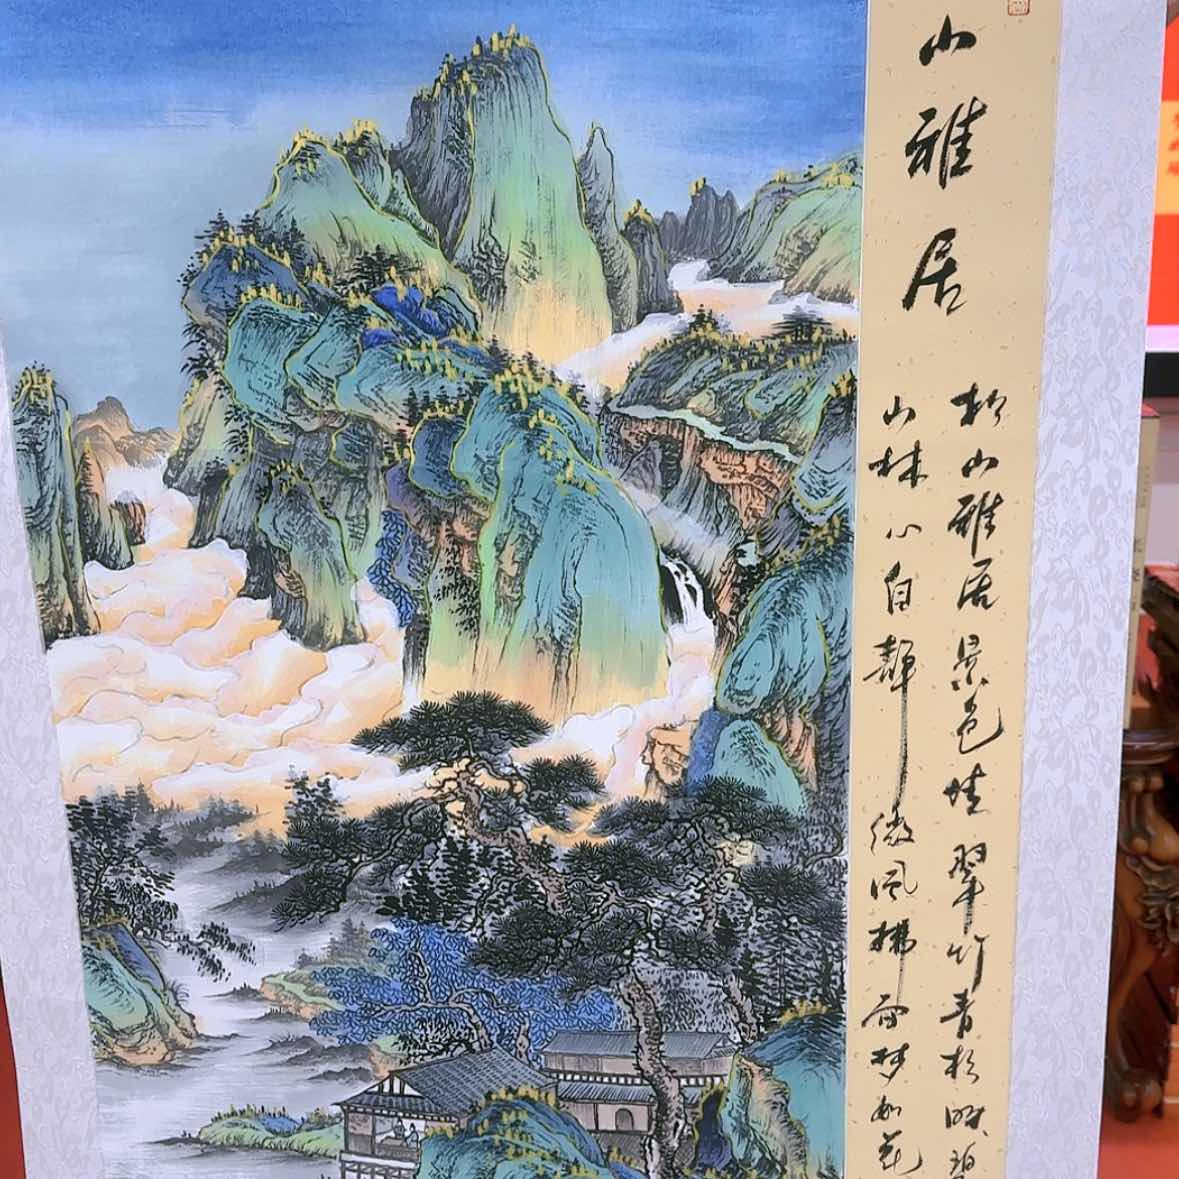 山雅居
松山雅居景色佳翠竹青松映碧
山林心自静微风拂面梦如花